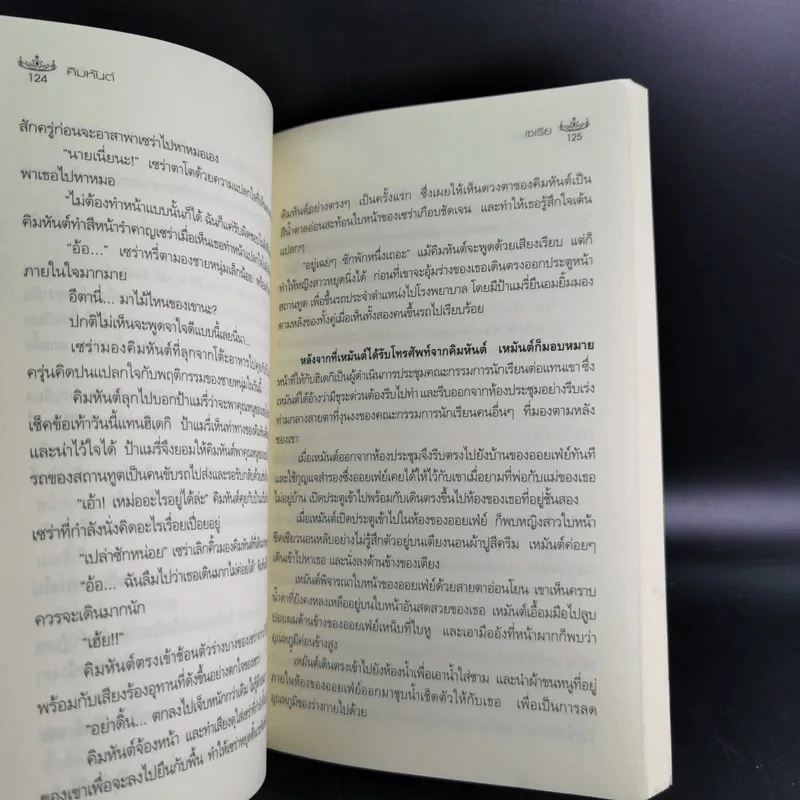 124 คิมหันต์
สักครู่ก่อนจะอาสาพาเซร่าไปหาหมอเอง
"นายเนี่ยนะ!" เซร่าตาโตด้วยความแปลกใจ
พาเธอไปหาหมอ
"ไม่ต้องทำหน้าแบบนั้นก็ได้ ฉันก็แค่รับผิดชอบ
คิมหันต์ทำสีหน้ารำคาญเซร่าเมื่อเห็นเธอทำหน้าแปลก
"อ้อ..." เซร่าหรี่ตามองชายหนุ่มเล็กน้อย
ภายในใจมากมาย
อีตานี่... มาไม้ไหนของเขานะ?
ปกติไม่เห็นจะพูดจาใจดีแบบนี้เลยนี่นา...
เซร่ามองคิมหันต์ที่ลุกจากโต๊ะอาหารไป
ครุ่นคิดปนแปลกใจกับพฤติกรรมของชายหนุ่มในวันนี้
คิมหันต์ลุกไปบอกป้าแมรี่ว่าจะพาคุณหนู
เช็คข้อเท้าวันนี้แทนฮิเดกิ ป้าแมรี่เห็นท่าทาง
และน่าไว้ใจได้ ป้าแมรี่จึงยอมให้คิมหันต์พาคุณหนู
รถของสถานทูตเป็นคนขับรถไปส่งและรอรับกลับด้วย
"เอ้า! เหม่ออะไรอยู่ได้ล่ะ" คิมหันต์คุยกับ
เซร่าที่กำลังนั่งคิดอะไรเรื่อยเปื่อยอยู่
"เปล่าซักหน่อย" เซร่าเลิกคิ้วมองคิมหันต์
"อ้อ... ฉันลืมไปว่าเธอเดินมากไม่ค่อยได้
ควรจะเดินมากนัก
"เฮ้ย!!"
คิมหันต์ตรงเข้าช้อนตัวร่างบางของเซร่า
พร้อมกับเสียงร้องอุทานที่ดังขึ้นอย่างตกใจของเซร่า
"อย่าดิ้น... ตกลงไปเจ็บหนักกว่าเดิม
คิมหันต์จ้องหน้า และทำเสียงดุใส่เซร่า
ของเขาเพื่อจะลงไปยืนกับพื้น ทำให้เซร่าหยุดดิ้น
เซเรีย 125
คิมหันต์อย่างตรงๆ เป็นครั้งแรก ซึ่งเผยให้เห็นดวงตาของคิมหันต์เป็น
สีน้ำตาลอ่อนสะท้อนใบหน้าของเซร่าเกือบชัดเจน และทำให้เธอรู้สึกใจเต้น
แปลกๆ
"อยู่เฉยๆ ซักพักหนึ่งเถอะ" แม้คิมหันต์จะพูดด้วยเสียงเรียบ แต่ก็
ทำให้หญิงสาวหยุดนิ่งได้ ก่อนที่เขาจะอุ้มร่างของเธอเดินตรงออกประตูหน้า
สถานทูต เพื่อขึ้นรถประจำตำแหน่งไปโรงพยาบาล โดยมีป้าแมรี่ยืนอมยิ้มมอง
ตามหลังของทั้งคู่เมื่อเห็นทั้งสองคนขึ้นรถไปเรียบร้อย
หลังจากที่เหมันต์ได้รับโทรศัพท์จากคิมหันต์ เหมันต์ก็มอบหมาย
หน้าที่ให้กับฮิเดกิเป็นผู้ดำเนินการประชุมคณะกรรมการนักเรียนต่อแทนเขา ซึ่ง
เหมันต์ได้อ้างว่ามีธุระด่วนต้องรีบไปทำ และรีบออกจากห้องประชุมอย่างรีบเร่ง
ท่ามกลางสายตาที่งุนงงของคณะกรรมการนักเรียนคนอื่นๆ ที่มองตามหลัง
ของเขา
เมื่อเหมันต์ออกจากห้องประชุมจึงรีบตรงไปยังบ้านของออยเฟย์ทันที
และใช้กุญแจสำรองซึ่งออยเฟย์เคยได้ให้ไว้กับเขาเมื่อยามที่พ่อกับแม่ของเธอ
ไม่อยู่บ้าน เปิดประตูเข้าไปพร้อมกับเดินตรงขึ้นไปห้องของเธอที่อยู่ชั้นสอง
เมื่อเหมันต์เปิดประตูเข้าไปในห้องของออยเฟย์ ก็พบหญิงสาวใบหน้า
ซีดเซียวนอนหลับอย่างไม่รู้สึกตัวอยู่บนเตียงนอนผ้าปูสีครีม เหมันต์ค่อยๆ
เดินเข้าไปหาเธอ และนั่งลงด้านข้างของเตียง
เหมันต์พิจารณาใบหน้าของออยเฟย์ด้วยสายตาอ่อนโยน เขาเห็นคราบ
น้ำตาที่ยังคงหลงเหลืออยู่บนใบหน้าอันสดสวยของเธอ เหมันต์เอื้อมมือไปลูบ
ปอยผมด้านข้างของออยเฟย์เหน็บที่ใบหู และเอามืออังที่หน้าผากก็พบว่า
อุณหภูมิค่อนข้างสูง
เหมันต์เดินตรงเข้าไปยังห้องน้ำเพื่อเอาน้ำใส่ชาม และนำผ้าขนหนูที่อยู่
ภายในห้องของออยเฟย์ออกมาชุบน้ำเช็ดตัวให้กับเธอ เพื่อเป็นการลด
อุณหภูมิของร่างกายไปด้วย